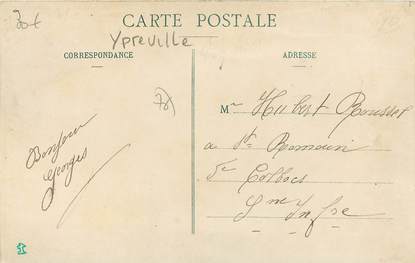 30€
CARTE POSTALE
Ypreville
CORRESPONDANCE
ADRESSE
76
Mr Hubert Rousset
a St Romain
De Colbosc
Sne Infre
Bonjour
Georges